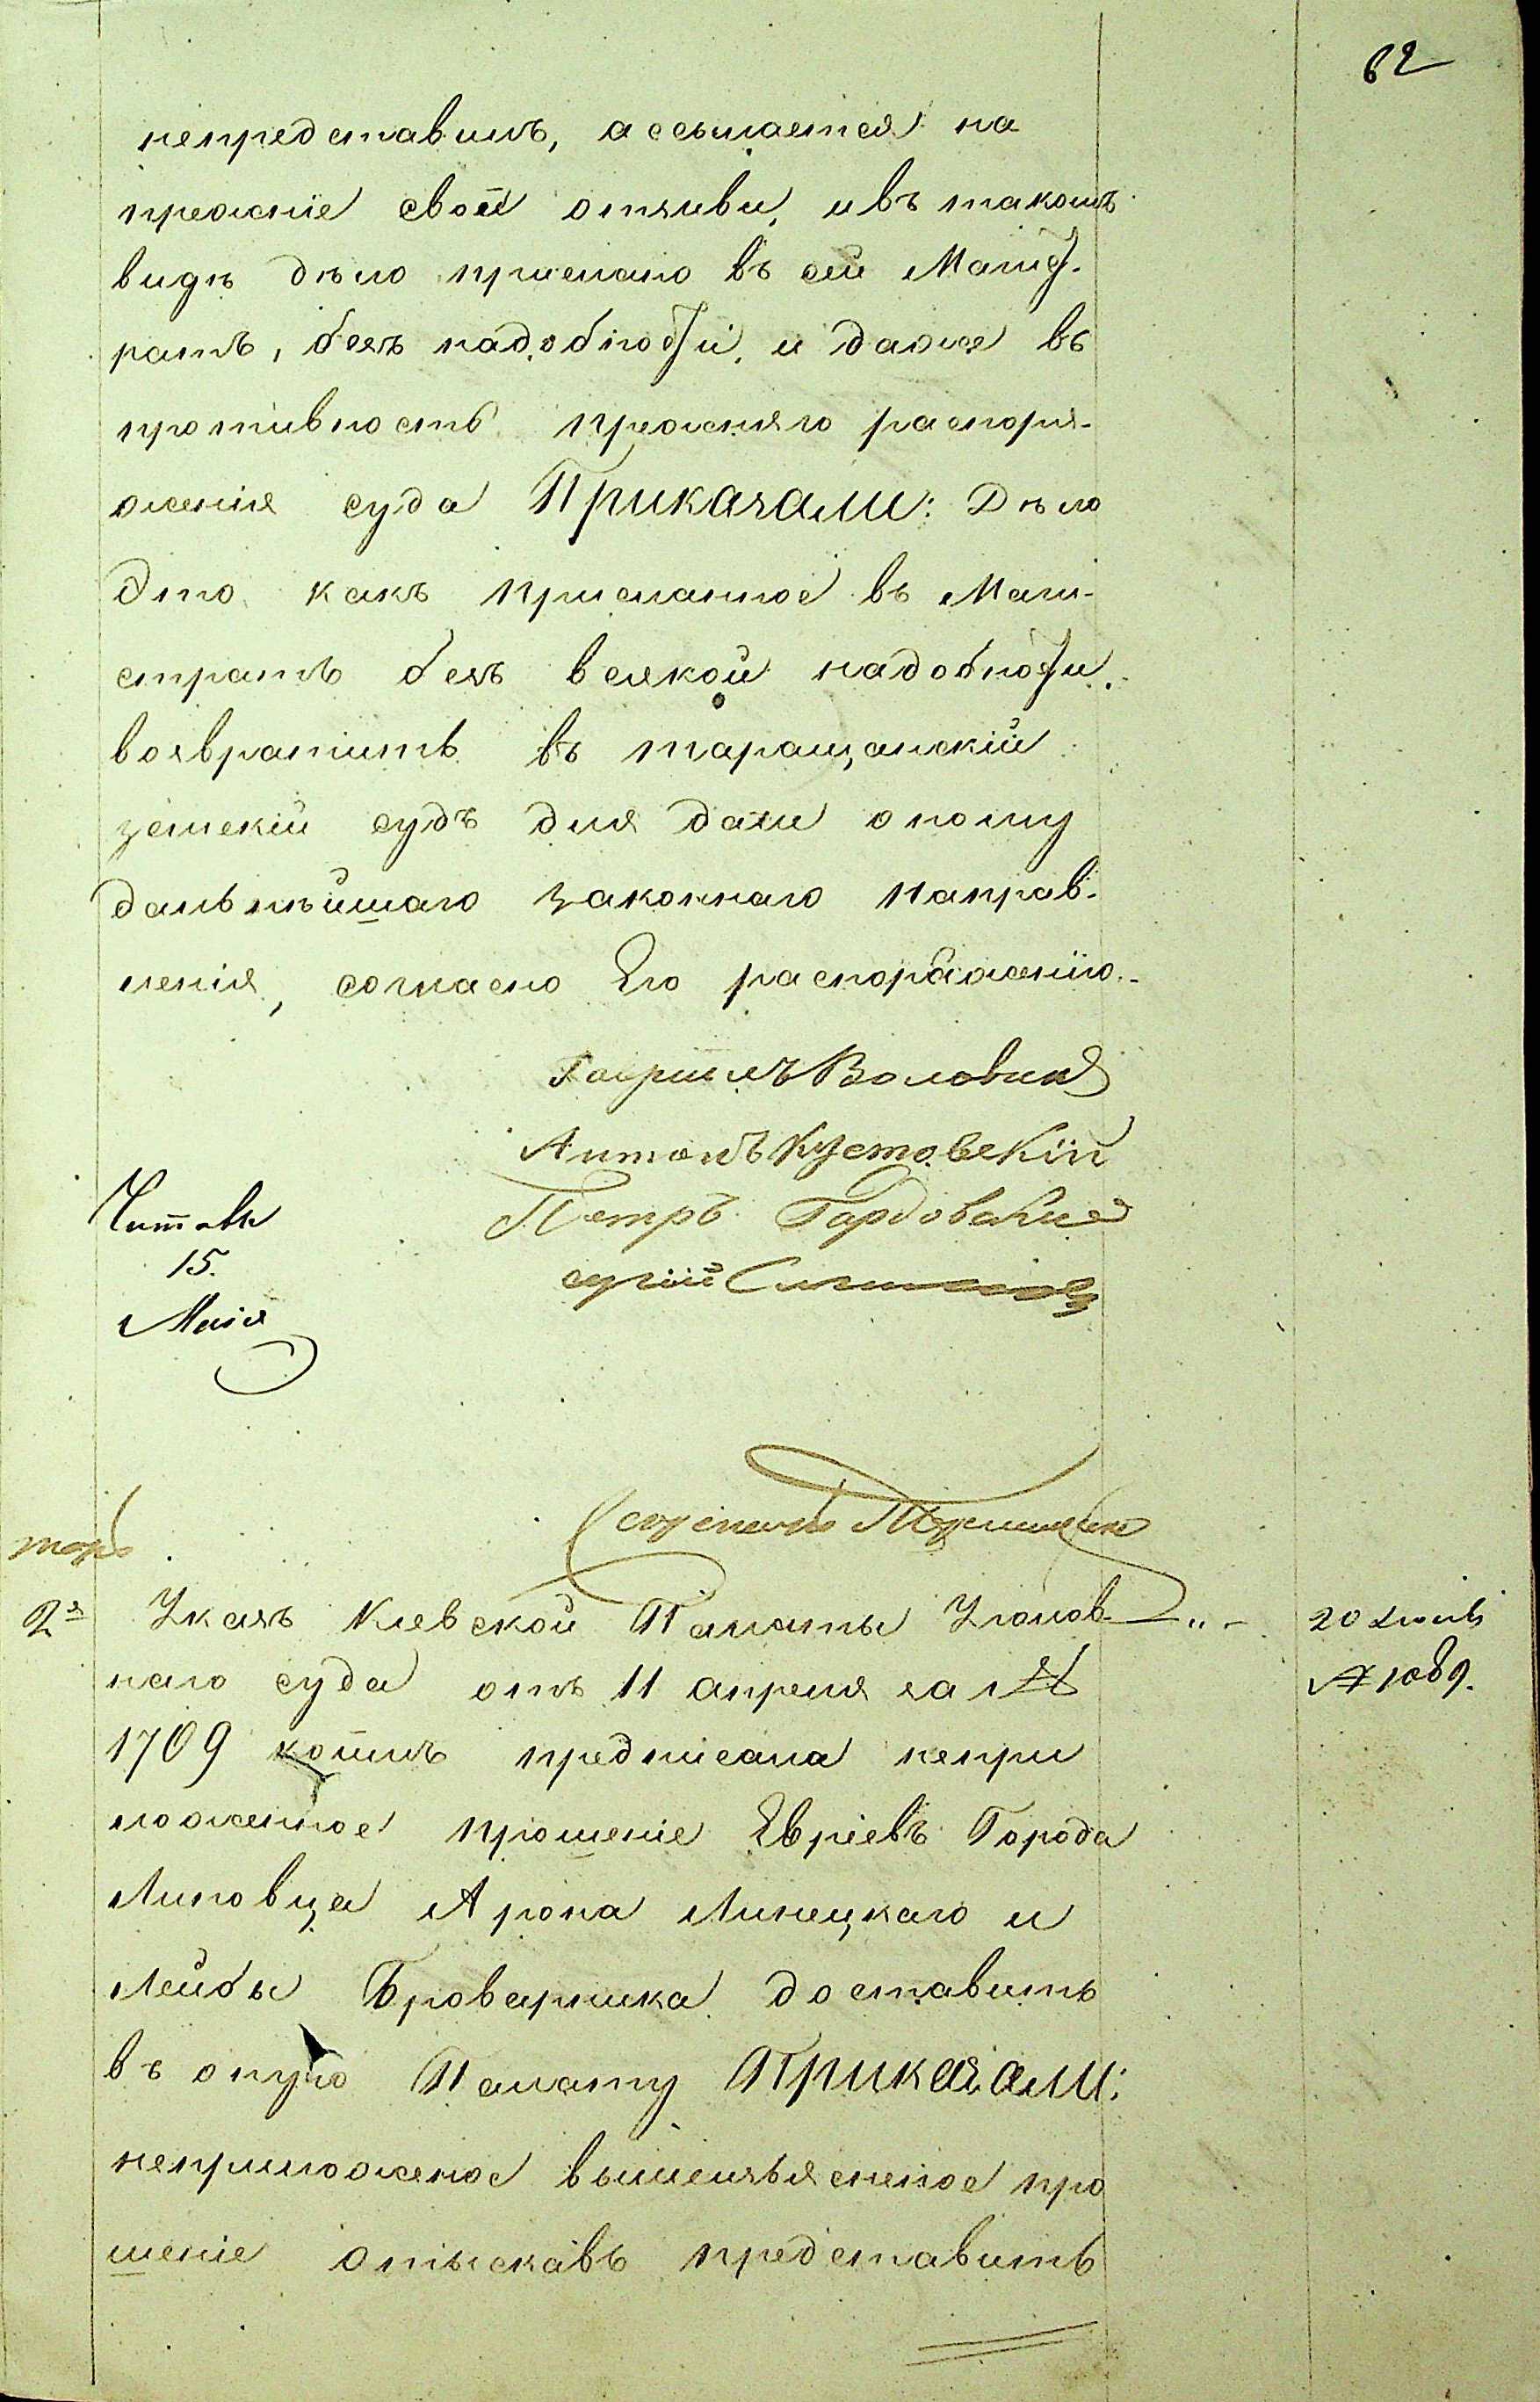 62
непредставилъ, а ссылается на
прежніе свои отзиви, ивъ такомъ
видѣ дѣло прислано въ сей Магист-
ратъ, безъ надобности, и даже въ
противность прежняго распоря-
женія суда Приказали: Дѣло
Это какъ присланное въ Маги-
стратъ безъ всякой надобности
возвратить въ таращанскій
земскій судъ для дачи оному
дальнѣйшаго законнаго направ-
ленія, согласно Его распоряженію.
Гавріилъ Воловик
Антонъ Кустовскій
Петръ Гордовскій
Читалъ
15.
Маія
Секретарь
2й Указъ Кіевской Палаты Уголов-
наго суда отъ 11 апреля за №
1709 коимъ предписала непри
ложенное прошеніе Евріевъ Города
Липовца Арона Линецкаго и
Лейбы Броварника доставить
въ оную Палату Приказали:
неприложеное вышеизъясненое про
шеніе отыскавъ представить
20
№ 1089.